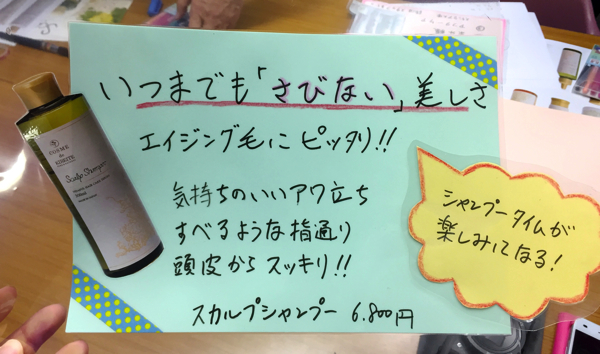 いつまでも「さびない」美しさ
エイジング毛にピッタリ!!
気持ちのいいアワ立ち
すべるような指通り
頭皮からスッキリ!!
スカルプシャンプー 6.800円
シャンプータイムが
楽しみになる!
COSME
de
Scalp Shampoo